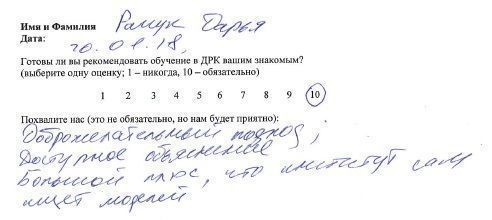 Имя и Фамилия Рамук Дарья
Дата: 20.01.18,
Готовы ли вы рекомендовать обучение в ДРК вашим знакомым?
(выберите одну оценку; 1 – никогда, 10 – обязательно)
1 2 3 4 5 6 7 8 9 10
Похвалите нас (это не обязательно, но нам будет приятно):
Доброжелательный подход,
Доступное объяснение
Большой плюс, что институт сам
ищет моделей